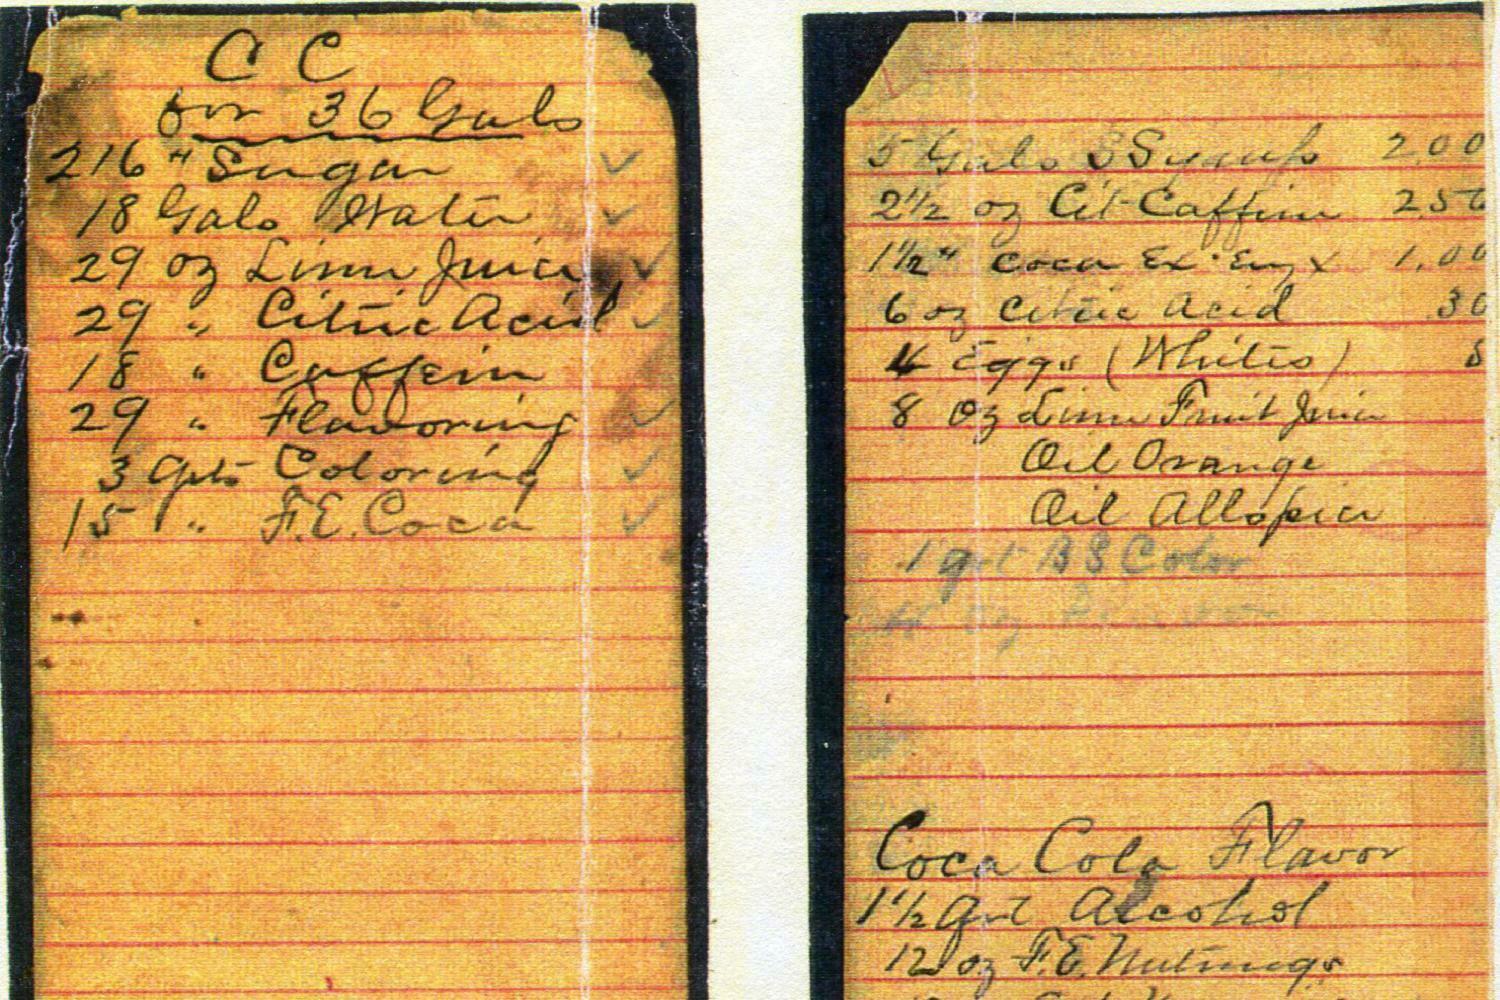 C C
for 36 Gals
216 " Sugar
18 Gals Water
29 oz Lime Juice
29 " Citric Acid
18 " Caffein
29 " Flavoring
3 Gals Coloring
15 " F.E. Coca
5 Gals S Syrup 2.00
2½ oz Cit-Caffein 2.50
1½ " Coca Ex. 1.00
6 oz Citric Acid .30
4 Eggs (Whites)
8 oz Lime Fruit Juice
Oil Orange
Oil
1 qrt B S Color
4 oz
Coca Cola Flavor
1½ Qrt Alcohol
12 oz F.E. Nutmegs